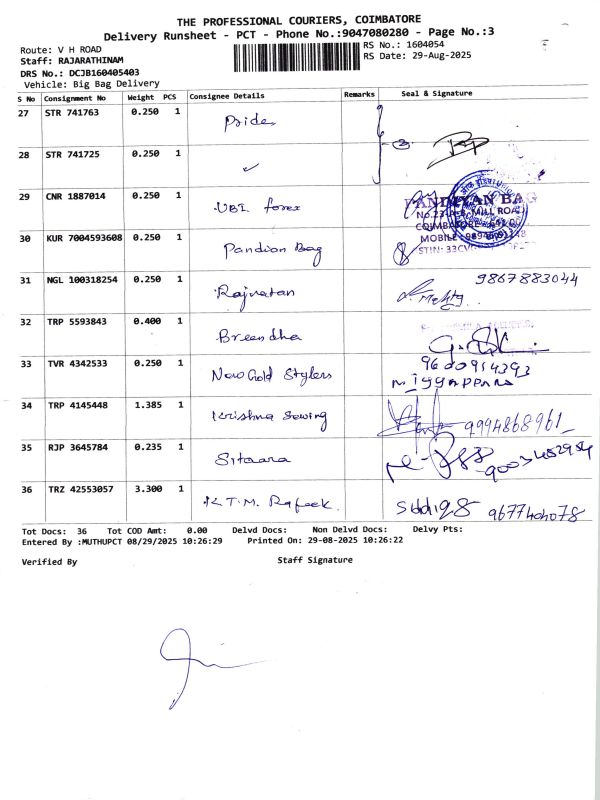 THE PROFESSIONAL COURIERS, COIMBATORE
Delivery Runsheet - PCT - Phone No.:9047080280 - Page No.:3
Route: V H ROAD
RS No.: 1604054
Staff: RAJARATHINAM
RS Date: 29-Aug-2025
DRS No.: DCJB160405403
Vehicle: Big Bag Delivery
S No Consignment No Weight PCS Consignee Details Remarks Seal & Signature
27 STR 741763 0.250 1 Pride
28 STR 741725 0.250 1 ✓
29 CNR 1887014 0.250 1 UBI forex
PANDIYAN BAG
MILL ROAD
30 KUR 7004593608 0.250 1 Pandion Bag
COIMBATORE
MOBILE
31 NGL 100318254 0.250 1 Rajratan 9867883044
Mehta
32 TRP 5593843 0.400 1 Breendha
33 TVR 4342533 0.250 1 New Gold Stylers 9600914393
34 TRP 4145448 1.385 1 Krishna Sewing 9994868961
35 RJP 3645784 0.235 1 Sitaara
36 TRZ 42553057 3.300 1 K.T.M. Rafeek. Siddiq 9677404078
Tot Docs: 36 Tot COD Amt: 0.00 Delvd Docs: Non Delvd Docs: Delvy Pts:
Entered By :MUTHUPCT 08/29/2025 10:26:29 Printed On: 29-08-2025 10:26:22
Verified By Staff Signature